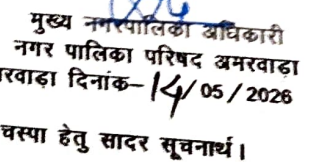 मुख्य नगरपालिका अधिकारी
नगर पालिका परिषद अमरवाड़ा
रवाड़ा दिनांक– 14/05/2026
चस्पा हेतु सादर सूचनार्थ।